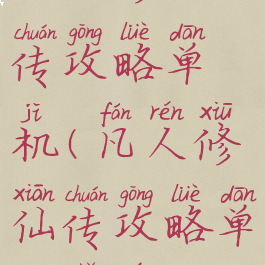 chuán gōng lüè dān
传攻略单
jī fán rén xiū
机(凡人修
xiān chuán gōng lüè dān
仙传攻略单